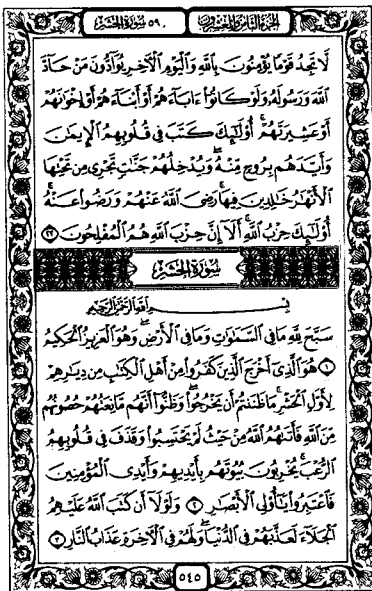 الجزء الثامن والعشرون
٥٩ سورة الحشر
لَّا تَجِدُ قَوْمًا يُؤْمِنُونَ بِاللَّهِ وَالْيَوْمِ الْآخِرِ يُوَادُّونَ مَنْ حَادَّ
اللَّهَ وَرَسُولَهُ وَلَوْ كَانُوا ءَابَاءَهُمْ أَوْ أَبْنَاءَهُمْ أَوْ إِخْوَانَهُمْ
أَوْ عَشِيرَتَهُمْ أُولَٰئِكَ كَتَبَ فِي قُلُوبِهِمُ الْإِيمَٰنَ
وَأَيَّدَهُم بِرُوحٍ مِّنْهُ وَيُدْخِلُهُمْ جَنَّٰتٍ تَجْرِي مِن تَحْتِهَا
الْأَنْهَٰرُ خَٰلِدِينَ فِيهَا رَضِيَ اللَّهُ عَنْهُمْ وَرَضُوا عَنْهُ
أُولَٰئِكَ حِزْبُ اللَّهِ أَلَا إِنَّ حِزْبَ اللَّهِ هُمُ الْمُفْلِحُونَ ٢٢
سورة الحشر
بِسْمِ اللَّهِ الرَّحْمَٰنِ الرَّحِيمِ
سَبَّحَ لِلَّهِ مَا فِي السَّمَٰوَٰتِ وَمَا فِي الْأَرْضِ وَهُوَ الْعَزِيزُ الْحَكِيمُ
١ هُوَ الَّذِي أَخْرَجَ الَّذِينَ كَفَرُوا مِنْ أَهْلِ الْكِتَٰبِ مِن دِيَٰرِهِمْ
لِأَوَّلِ الْحَشْرِ مَا ظَنَنتُمْ أَن يَخْرُجُوا وَظَنُّوا أَنَّهُم مَّانِعَتُهُمْ حُصُونُهُم
مِّنَ اللَّهِ فَأَتَىٰهُمُ اللَّهُ مِنْ حَيْثُ لَمْ يَحْتَسِبُوا وَقَذَفَ فِي قُلُوبِهِمُ
الرُّعْبَ يُخْرِبُونَ بُيُوتَهُم بِأَيْدِيهِمْ وَأَيْدِي الْمُؤْمِنِينَ
فَاعْتَبِرُوا يَٰأُولِي الْأَبْصَٰرِ ٢ وَلَوْلَا أَن كَتَبَ اللَّهُ عَلَيْهِمُ
الْجَلَاءَ لَعَذَّبَهُمْ فِي الدُّنْيَا وَلَهُمْ فِي الْآخِرَةِ عَذَابُ النَّارِ ٣
٥٤٥